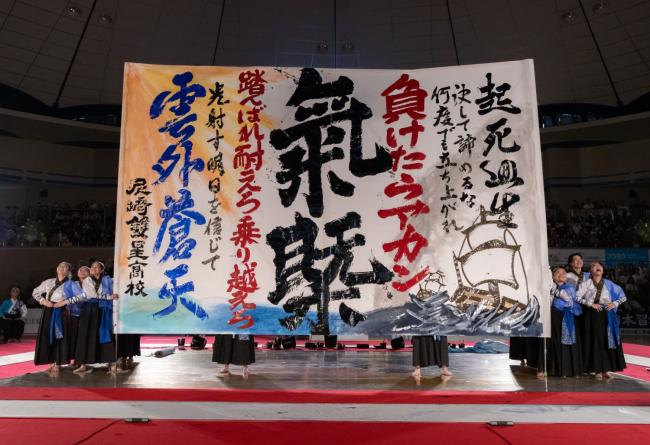 起死回生
決して諦めるな
何度でも立ち上がれ
負けたらアカン
氣槩
踏んばれ耐えろ乗り越えろ
光射す明日を信じて
雲外蒼天
尼崎雙星高校